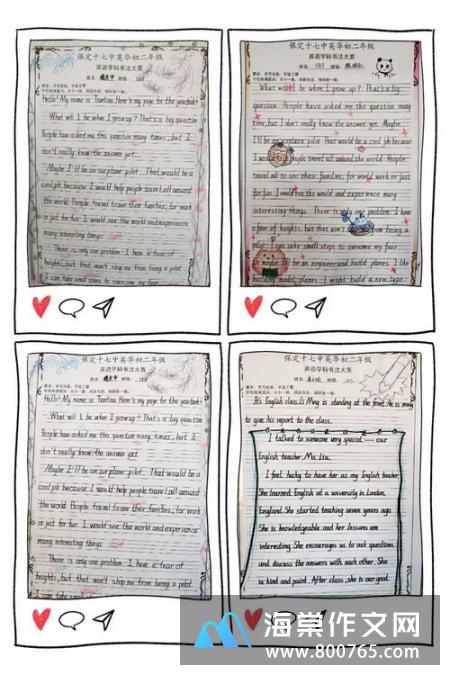 保定十七中英华初二年级
英语学科书法大赛
Hello! My name is Taotao. Here's my page for the yearbook!
What will I be when I grow up? That's a big question.
People have asked me this question many times, but I
don't really know the answer yet.
Maybe I'll be an airplane pilot. That would be a
cool job because I would help people travel all around
the world. People travel to see their families, for
work or just for fun. I would see the world and experience
many interesting things.
There is only one problem. I have a fear of
heights, but that won't stop me from being a pilot.
I can take small steps to overcome my fear.
保定十七中英华初二年级
英语学科书法大赛
What will I be when I grow up? That's a big
question. People have asked me this question many
time, but I don't really know the answer yet. Maybe
I'll be an airplane pilot. That would be a cool job because
I would people travel all around the world. People
travel all to see their families, for world work or just
for fun. I would see the would and experience many
interesting things. There is only problem. I have
a fear of heights, but that won't from being a
pilot. I can take small steps to overcome my fear.
Or maybe I'll be an engineer and build planes. I like
building model planes. I might build a new type
保定十七中英华初二年级
英语学科书法大赛
Hello! My name is Taotao. Here's my page for the yearbook!
What will I be when I grow up? That's a big question.
People have asked me this question many times, but I
don't really know the answer yet.
Maybe I'll be an airplane pilot. That would be a
cool job because I would help people travel all around
the world. People travel to see their families, for work
or just for fun. I would see the world and experience
many interesting things.
There is only one problem. I have a fear of
heights, but that won't stop me from being a pilot.
I can take small
保定十七中英华初二年级
英语学科书法大赛
It's English class. Li Ming is standing at the front. He is
to give his report to the class.
I talked to someone very special — our
English teacher, Ms. Liu.
I feel lucky to have her as my English teacher.
She learned English at a university in London,
England. She started teaching seven years ago.
She is knowledgeable and her lessons are
interesting. She encourages us to ask questions
and discuss the answers with each other. She
is kind and patient. After class, she is our good
海棠作文网
www.800765.com